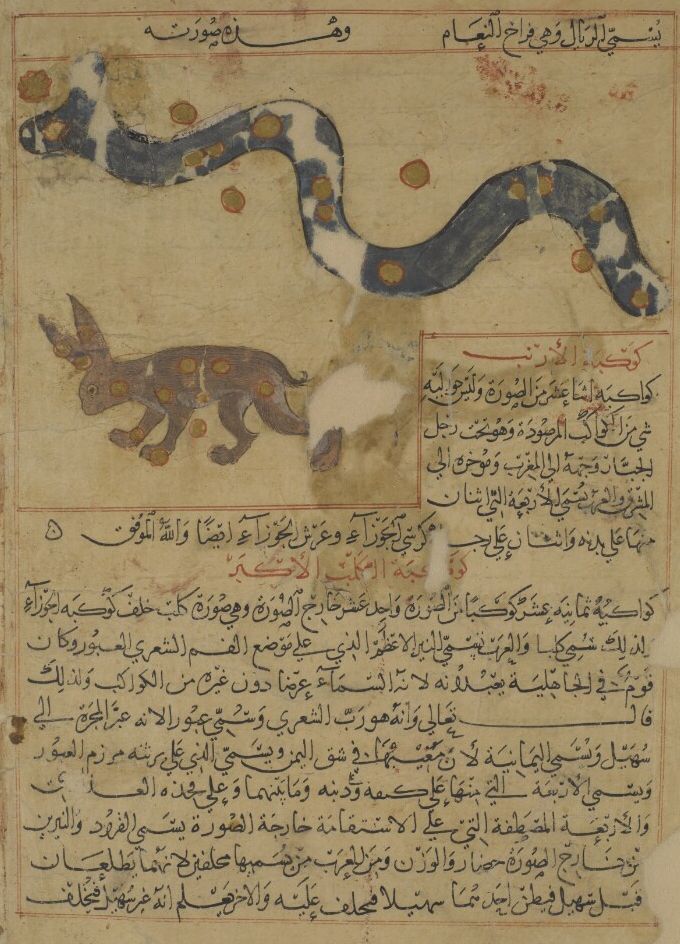 يسمي الريال وهي فراخ النعام وهذه صورته
كوكبة الأرنب
كواكبه اثنا عشر من الصورة وليس حواليه
شي من الكواكب المرصودة وهو تحت رجل
الجبار وجهه الي المغرب وموخره الي
المشرق والعرب تسمي الأربعة التي اثنان
منها علي يديه واثنان علي رجليه كرسي الجوزاء وعرش الجوزاء ايضا والله الموفق
كوكبة الكلب الأكبر
كواكبه ثمانية عشر كوكبا من الصورة واحد عشر خارج الصورة وهي صورة كلب خلف كوكبة الجوزاء
ولذلك سمي كلبا والعرب تسمي النير الاعظم الذي علي موضع الفم الشعري العبور وكان
قوم في الجاهلية يعبدونه لانه السماء عرضا دون غيره من الكواكب ولذلك
قال تعالي وانه هو رب الشعري وسمي عبور الانه عبر المجرة الي
سهيل ويسمي اليمانية لان مغيبها في شق اليمن ويسمي الذي علي يده مرزم العبور
ويسمي الاربعة التي منها علي كتفه وذنبه وما بينهما وعلي فخذه العذاري
والاربعة المصطفة التي علي الاستقامة خارجة الصورة يسمي القرود والنيرين
خارج الصورة حضار والوزن ومن العرب من يسميها محلفين لانهما يطلعان
قبل سهيل فيظن احدهما سهيلا فيحلف عليه والاخر يعلم انه غير سهيل فيحلف